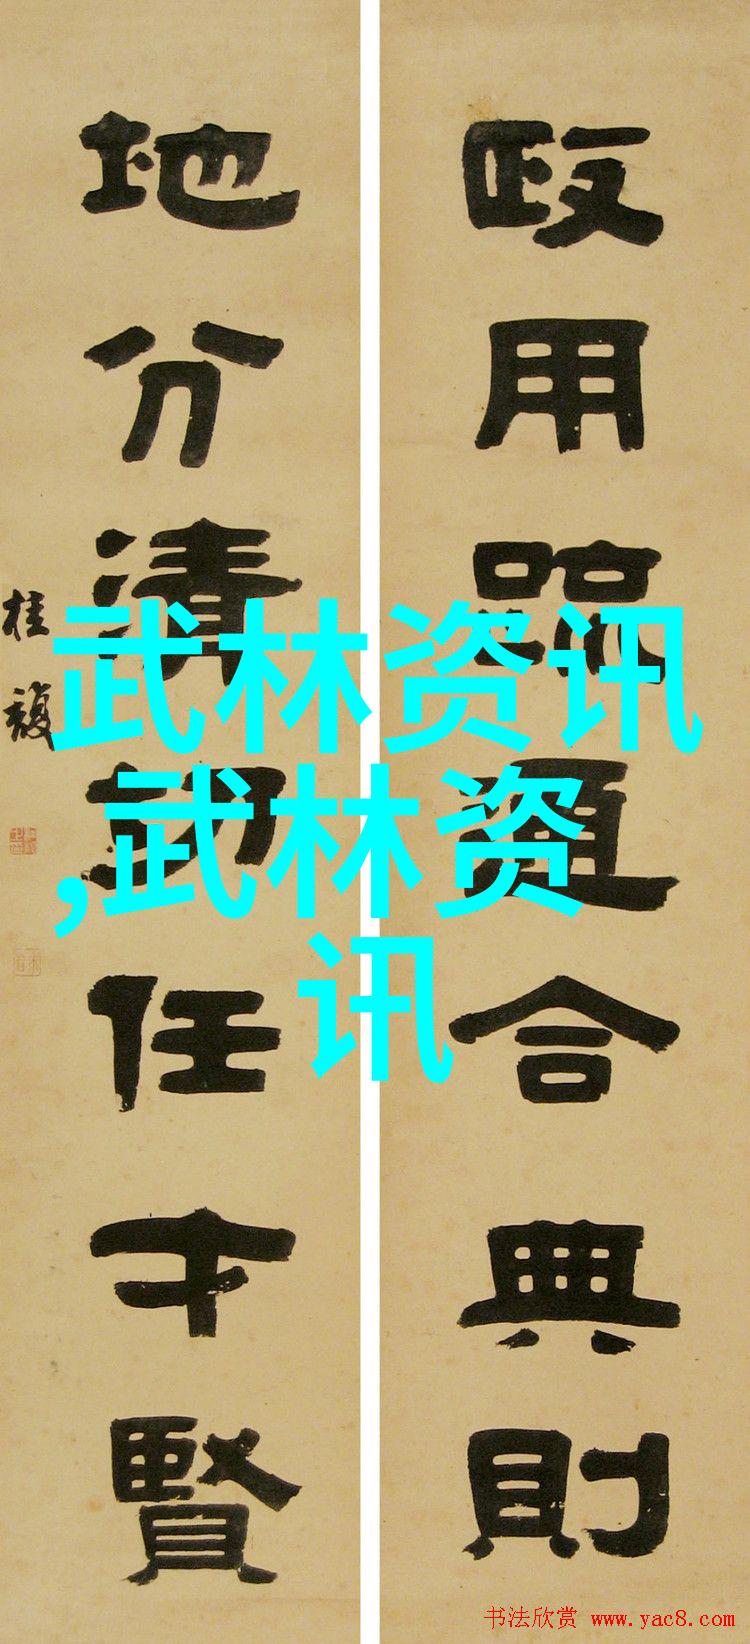 政用疏通合典則
地分清切任才賢
桂馥
武林资讯
,武林资
讯
书法欣赏 www.yac8.com